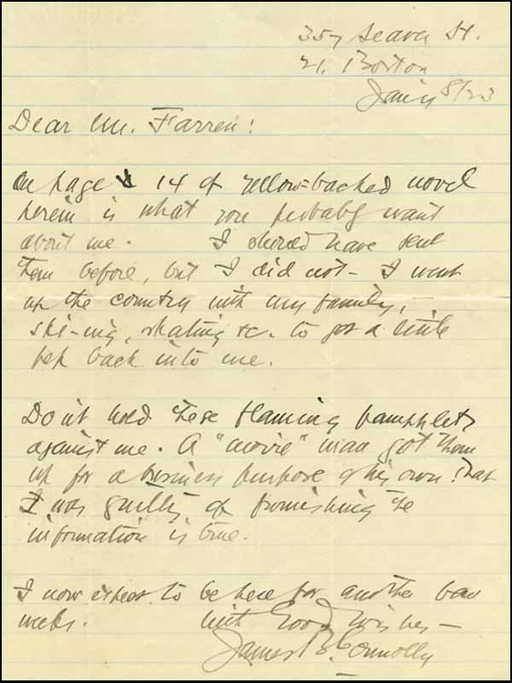 357 Seaver St.
21. Boston
Jan'y 8/23
Dear Mr. Farren:
On page 14 of yellow-backed novel
herein is what you probably want
about me. I should have sent
them before, but I did not - I went
up the country with my family,
ski-ing, skating &c. to get a little
pep back into me.
Don't hold these flaming pamphlets
against me. A "movie" man got them
up for a business purpose of his own. That
I was guilty of furnishing the
information is true.
I now expect to be here for another few
weeks. With Good Wishes -
James B. Connolly